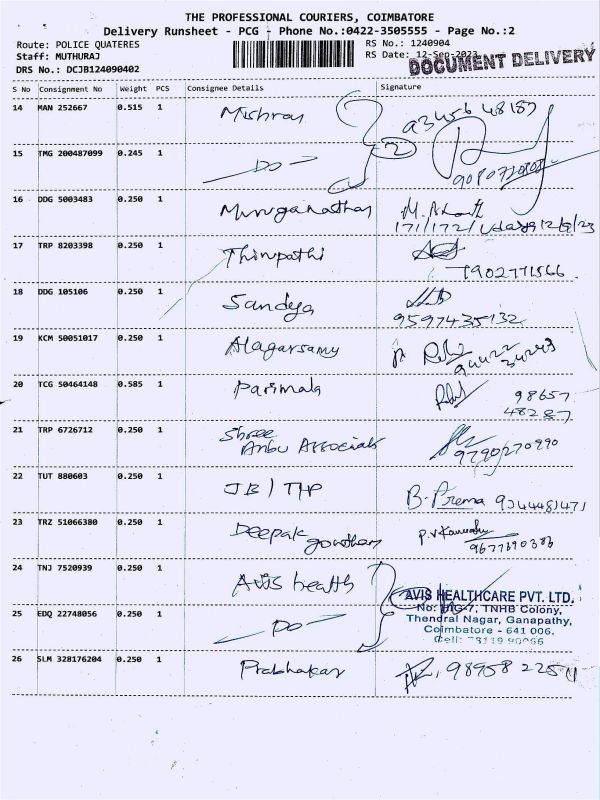 THE PROFESSIONAL COURIERS, COIMBATORE
Delivery Runsheet - PCG - Phone No.:0422-3505555 - Page No.:2
Route: POLICE QUATERES
RS No.: 1240904
Staff: MUTHURAJ
RS Date: 12-Sep-2023
DOCUMENT DELIVERY
DRS No.: DCJB124090402
S No Consignment No Weight PCS Consignee Details Signature
14 MAN 252667 0.515 1 Mishray
15 TMG 200487099 0.245 1 DO 2
16 DDG 5003483 0.250 1 Muruganathan
17 TRP 8203398 0.250 1 Thirupathi
7902771566
18 DDG 105106 0.250 1 Sandya
9597435132
19 KCM 50051017 0.250 1 Alagarsamy
94422 34243
20 TCG 50464148 0.585 1 Parimala
98657
48287
21 TRP 6726712 0.250 1 Shree
Anbu Associats
9790270990
22 TUT 880603 0.250 1 JB / THP B. Prema 9344481471
23 TRZ 51066380 0.250 1 Deepak
gowtham
9677690386
24 TNJ 7520939 0.250 1 Avis health
AVIS HEALTHCARE PVT. LTD.
No: HIG-7, TNHB Colony,
Thendral Nagar, Ganapathy,
Coimbatore - 641 006.
Cell:
25 EDQ 22748056 0.250 1 DO
26 SLM 328176204 0.250 1 Prabhakar